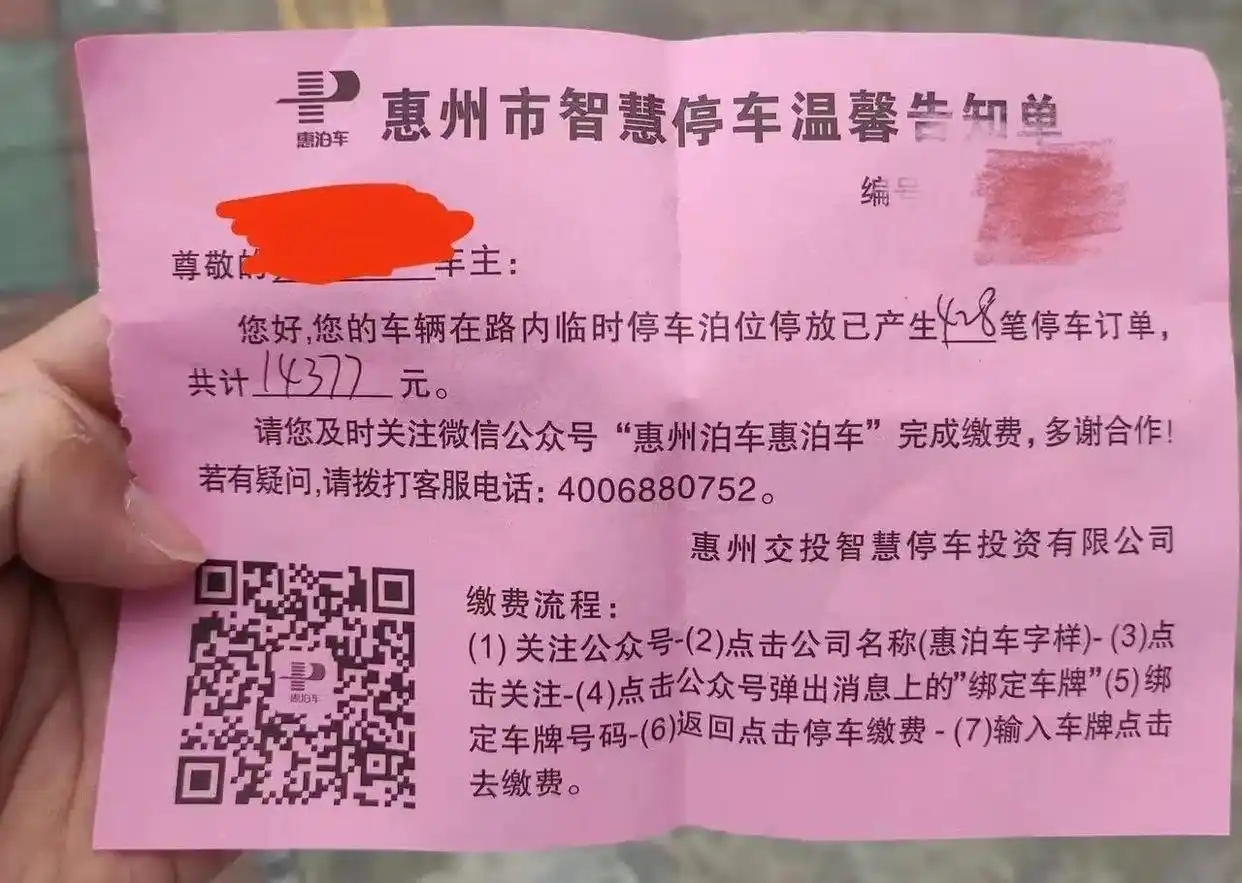 惠泊车
惠州市智慧停车温馨告知单
编号
尊敬的 车主：
您好,您的车辆在路内临时停车泊位停放已产生428笔停车订单，
共计14377元。
请您及时关注微信公众号“惠州泊车惠泊车”完成缴费，多谢合作！
若有疑问,请拨打客服电话：4006880752。
惠州交投智慧停车投资有限公司
缴费流程：
(1)关注公众号-(2)点击公司名称(惠泊车字样)-(3)点
击关注-(4)点击公众号弹出消息上的”绑定车牌”(5)绑
定车牌号码-(6)返回点击停车缴费-(7)输入车牌点击
去缴费。
惠泊车